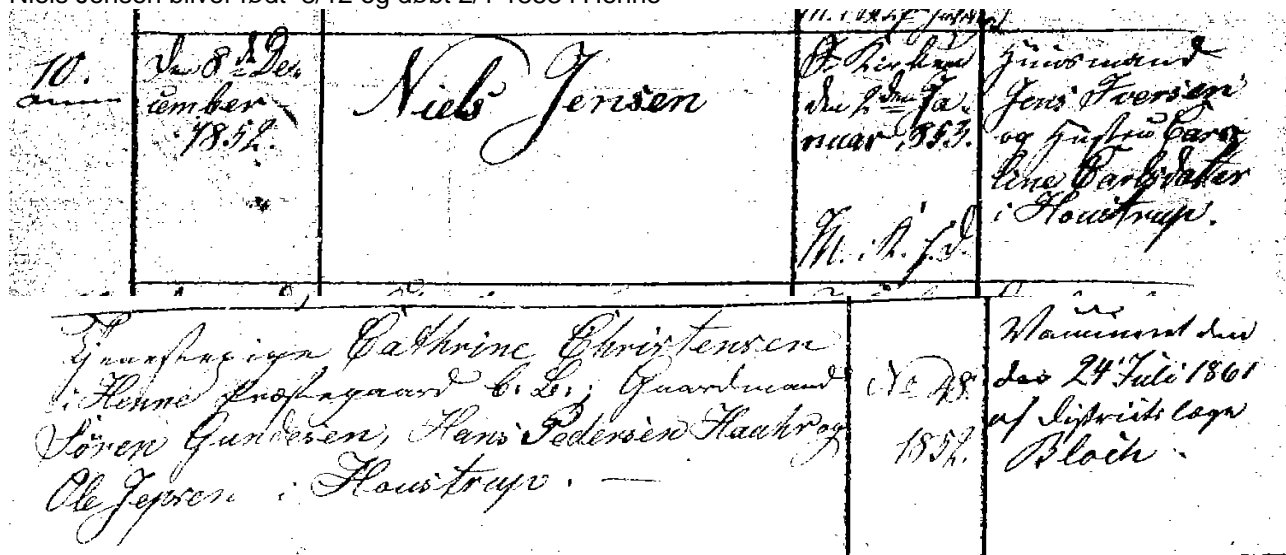 Niels Jensen bliver født 8/12 og døbt 2/1 1853 i Henne
10.
den 8de De-
cember
1852.
Niels Jensen
I Kirken
den 2den Ja-
nuar 1853.
M. i K. f. d.
Huusmand
Jens Iversen
og Hustru Caro-
line Carlsdatter
i Houstrup.
Tjenestepige Cathrine Christensen
i Henne Præstegaard b. B.; Gaardmand
Sören Gundesen, Hans Pedersen Hauhr og
Ole Jepsen i Houstrup. —
No 48.
1852.
Vaccineret den
24 Juli 1861
af Districtslæge
Bloch.